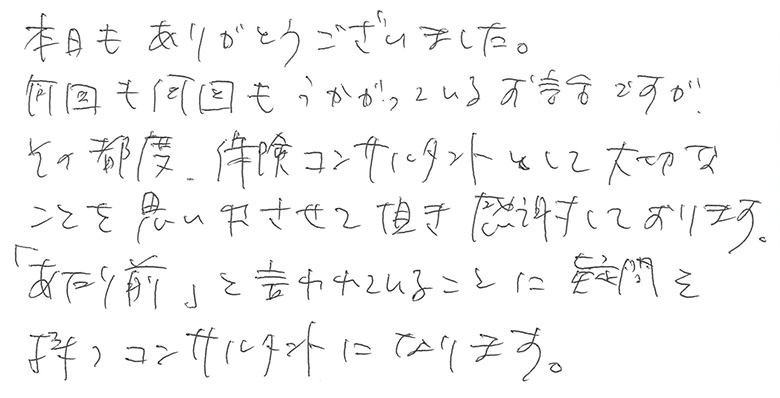 本日もありがとうございました。
何回も何回もうかがっているお話ですが、
その都度、保険コンサルタントとして大切な
ことを思い出させて頂き感謝しております。
「あたり前」と言われていることに疑問を
持つコンサルタントになります。